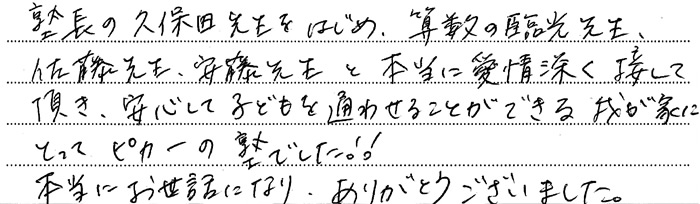 塾長の久保田先生をはじめ、算数の臨光先生、
佐藤先生、安藤先生と本当に愛情深く接して
頂き、安心して子どもを通わせることができる我が家に
とってピカ一の塾でした!!
本当にお世話になり、ありがとうございました。